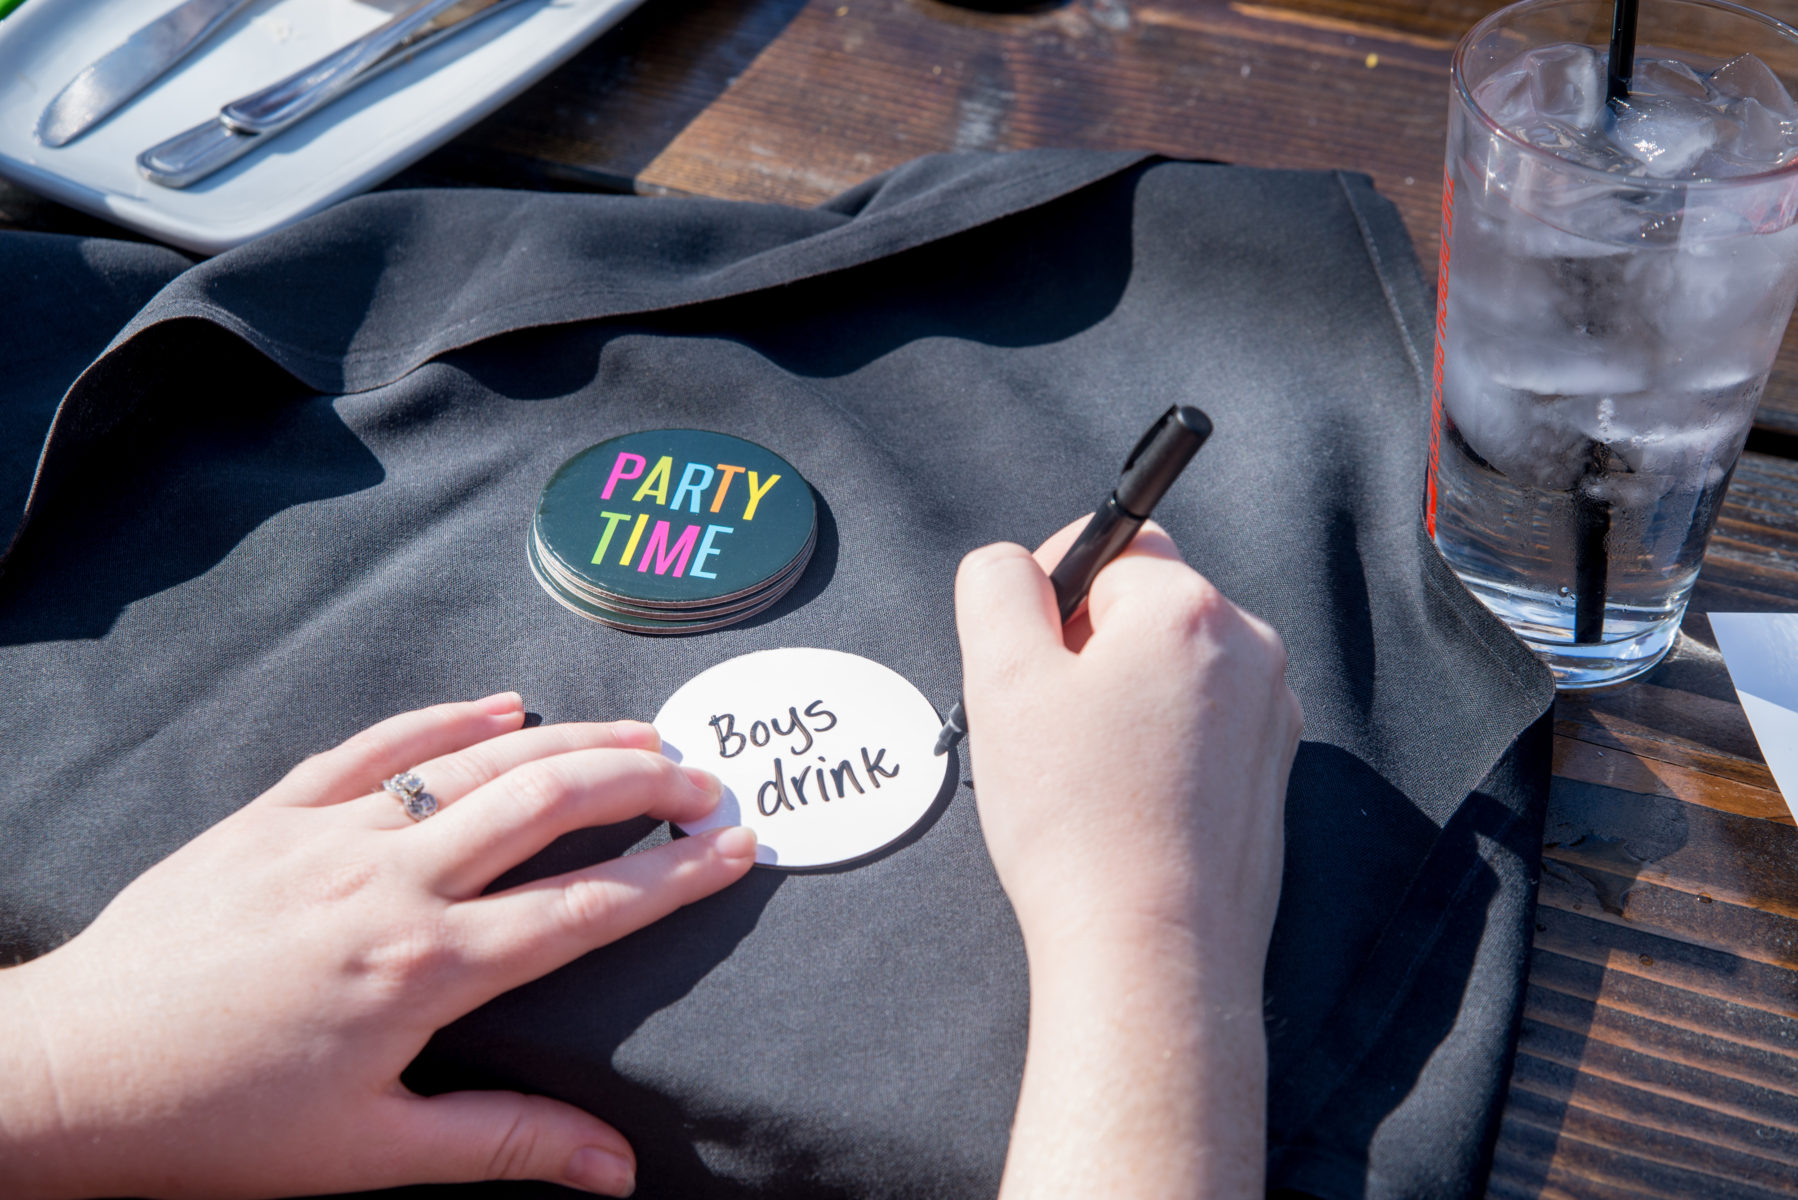 PARTY
TIME
Boys
drink